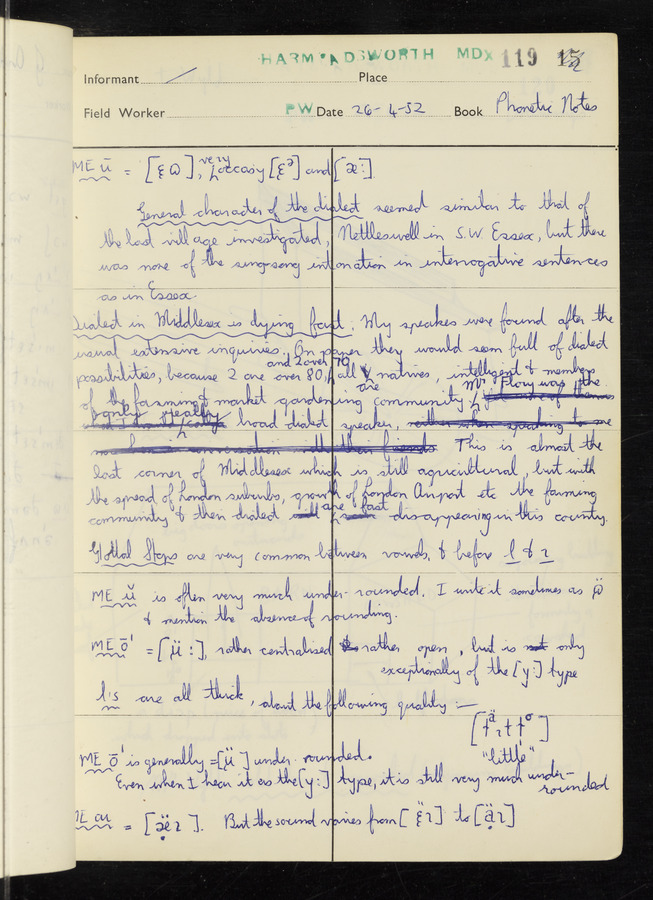 HARMONDSWORTH MDX 119 15
Informant Place
Field Worker PW Date 26-4-52 Book Phonetic Notes
ME ū = [ɛɷ], very occasy [ɛᵊ] and [æ:]
General character of the dialect seemed similar to that of
the last village investigated, Nettleswell in S.W. Essex, but there
was none of the sing-song intonation in interrogative sentences
as in Essex.
Dialect in Middlesex is dying fast. My speakers were found after the
usual extensive inquiries. On paper they would seem full of dialect
possibilities, because 2 are over 80, and 2 over 70, all are natives, intelligent & members
of the farming & market gardening community. Mr Flory was the
only really broad dialect speaker,
This is almost the
last corner of Middlesex which is still agricultural, but with
the spread of London suburbs, growth of London Airport etc the farming
community & their dialect are fast disappearing in this county.
Glottal Stops are very common between vowels, & before l & ɿ
ME ŭ is often very much under-rounded. I write it sometimes as ɷ̈
& mention the absence of rounding.
ME ō¹ = [ü:], rather centralised rather open, but is only
exceptionally of the [y:] type
l's are all thick, about the following quality :—
"little"
ME ō¹ is generally = [ü] under-rounded.
Even when I hear it as the [y:] type, it is still very much under-
rounded
ME au = [æ̈ɿ]. But the sound varies from [ɛ̈ɿ] to [äɿ]